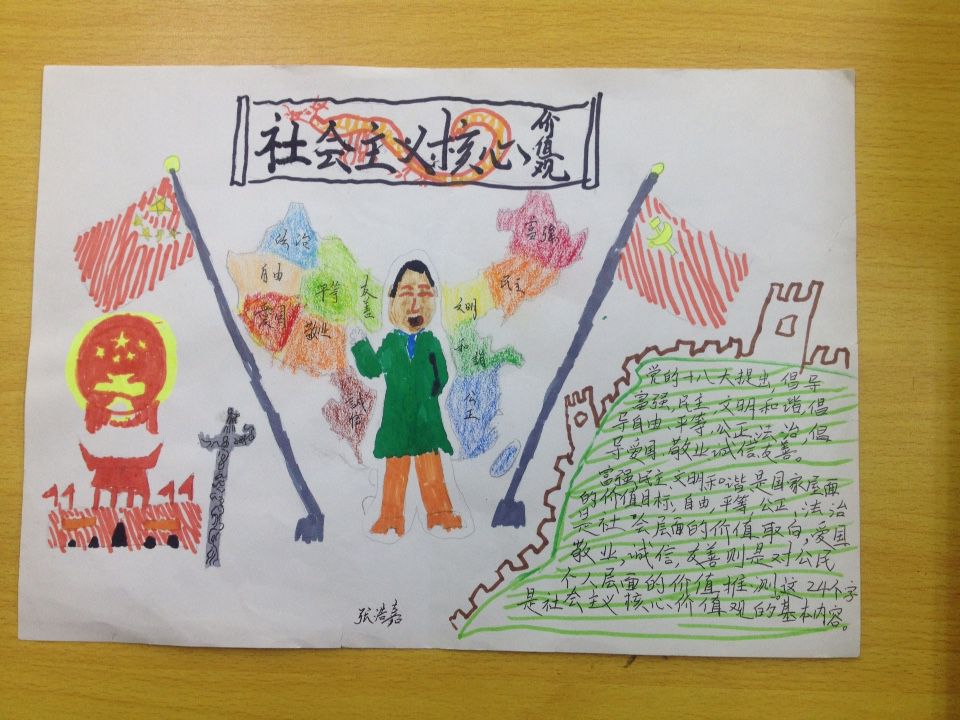 社会主义核心价值观
法治
自由
平等
友善
爱国
敬业
诚信
富强
民主
文明
和谐
公正
党的十八大提出,倡导
富强,民主,文明和谐,倡
导自由、平等,公正,法治,倡
导爱国,敬业诚信,友善。
富强,民主,文明和谐是国家层面
的价值目标,自由,平等,公正,法治
是社会层面的价值取向,爱国
敬业,诚信,友善则是对公民
个人层面的价值推测,这24个字
是社会主义核心价值观的基本内容。
张浩嘉